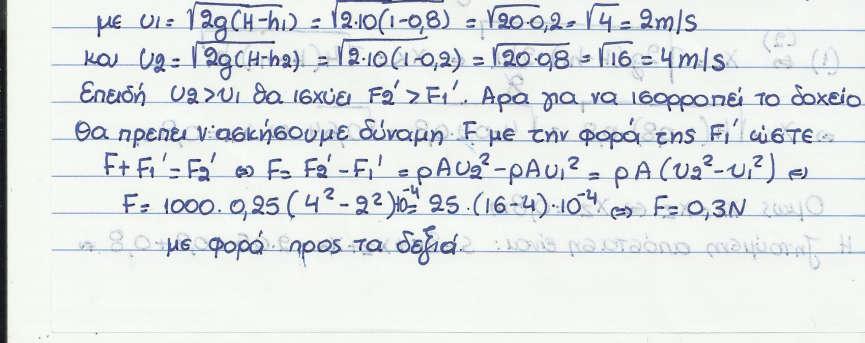 με υ₁ = √2g(H-h₁) = √2·10(1-0,8) = √20·0,2 = √4 = 2m/s
και υ₂ = √2g(H-h₂) = √2·10(1-0,2) = √20·0,8 = √16 = 4m/s
Επειδή υ₂>υ₁ θα ισχύει F₂'>F₁'. Αρα για να ισορροπεί το δοχείο
θα πρεπει ν'ασκήσουμε δύναμη F με την φορά της F₁' ώστε
F+F₁'=F₂' ⇔ F= F₂'-F₁' = ρAυ₂²-ρAυ₁² = ρA(υ₂²-υ₁²) ⇔
F= 1000·0,25(4²-2²)10⁻⁴ = 25·(16-4)·10⁻⁴ ⇔ F=0,3N
με φορά προς τα δεξιά.